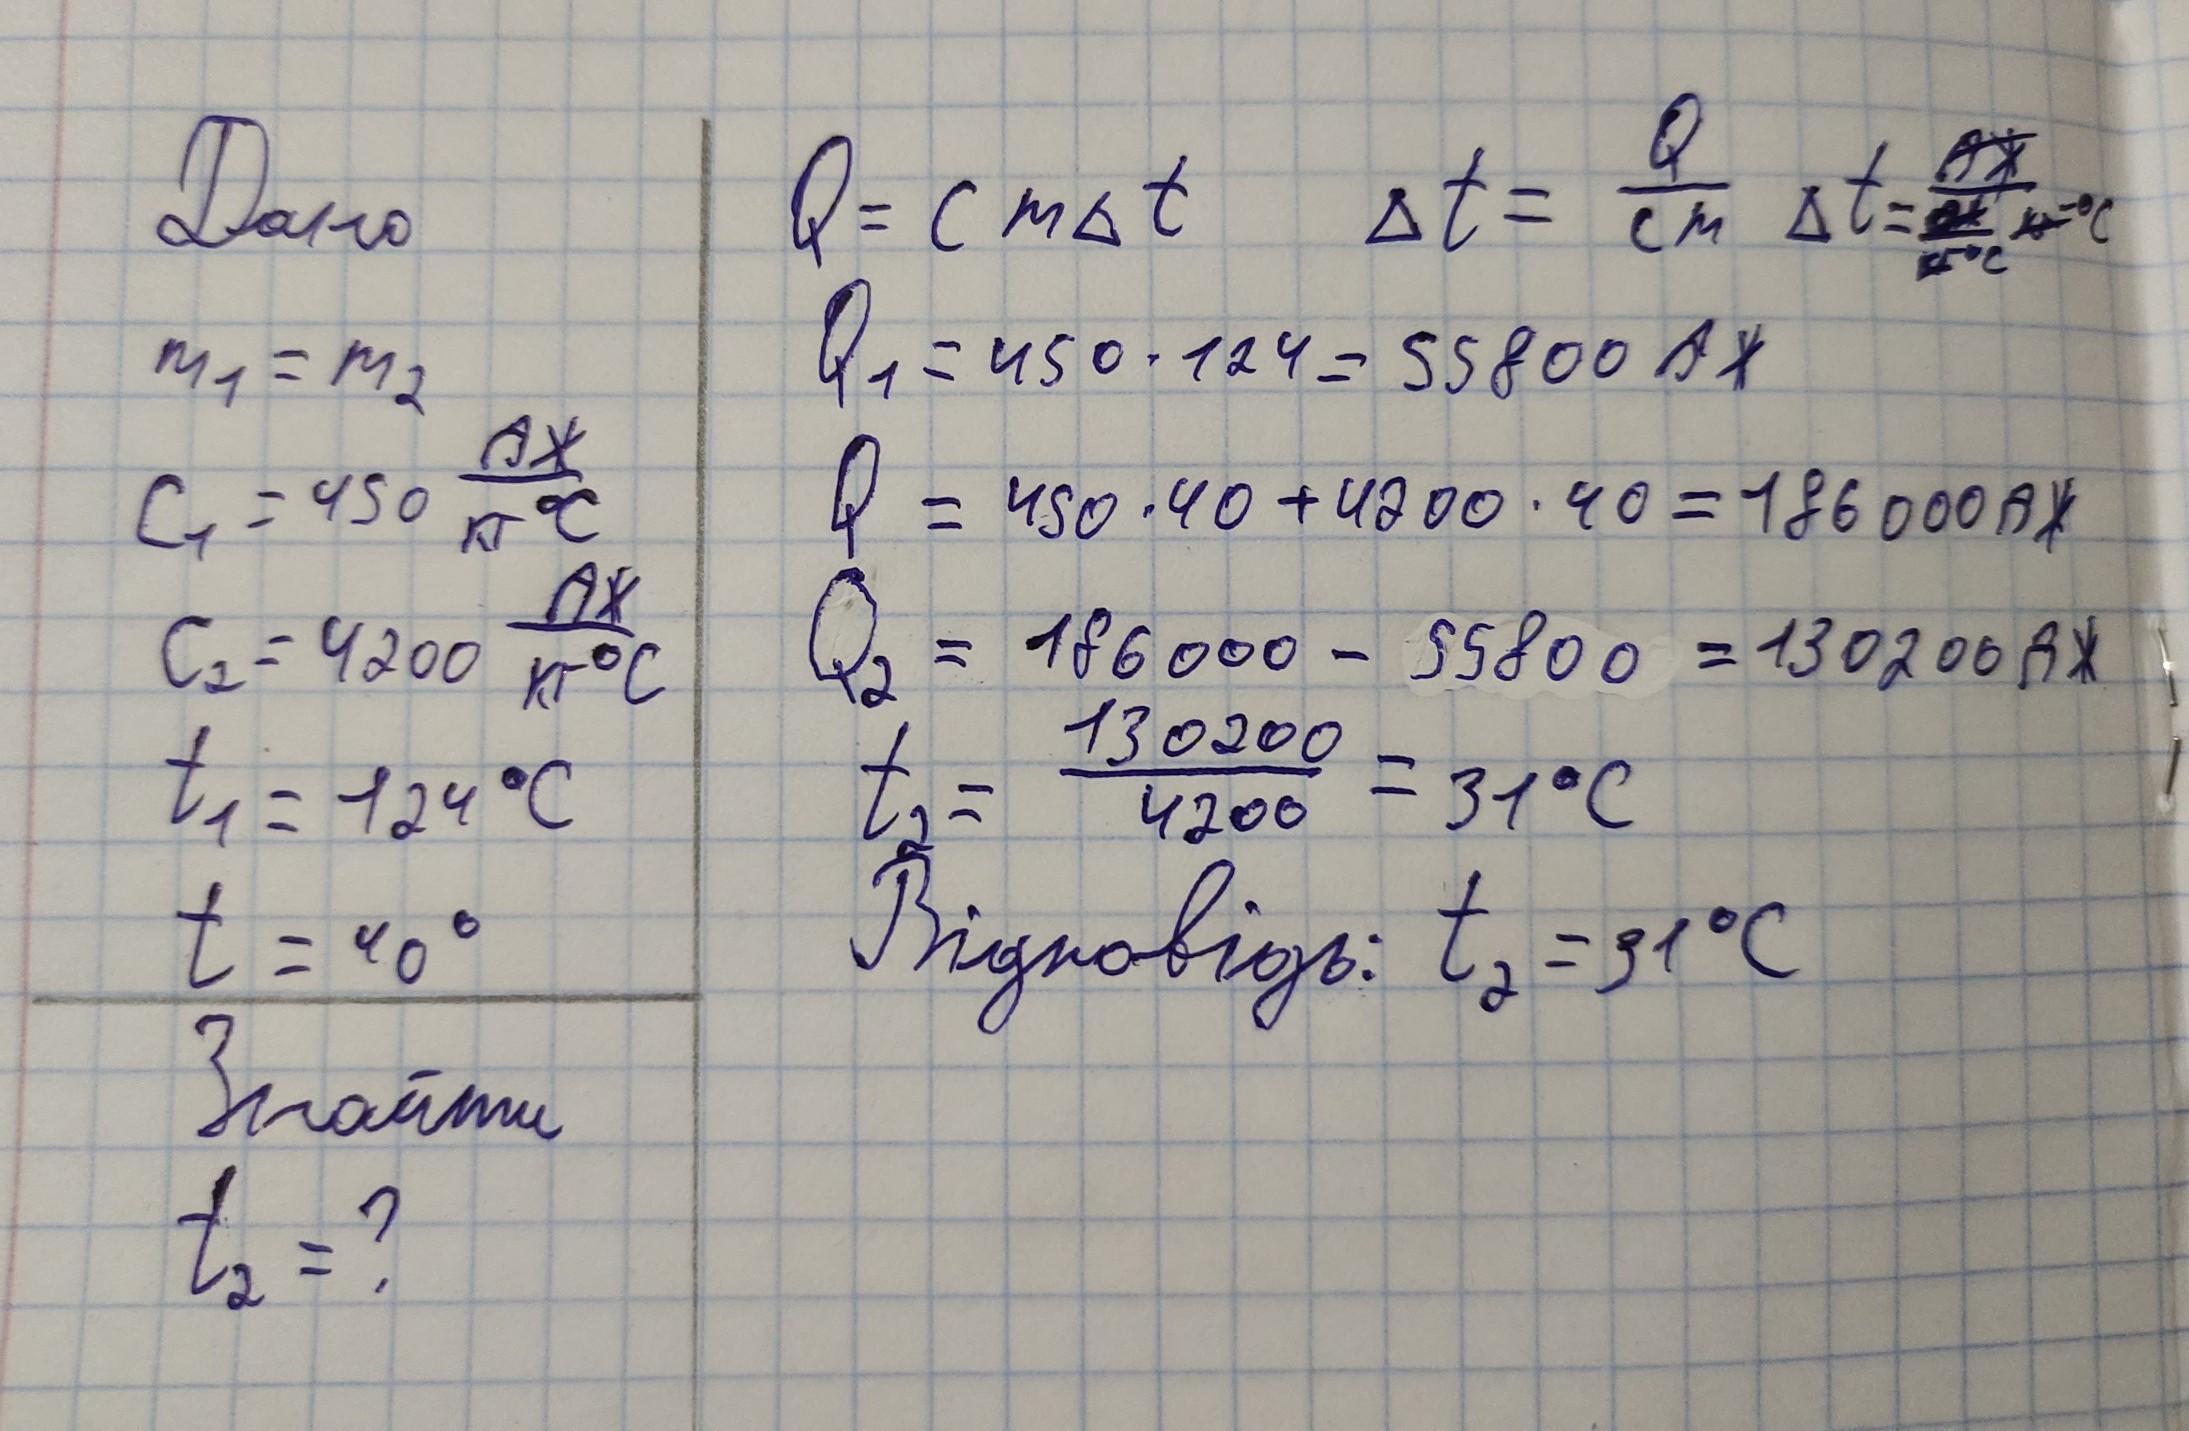 Дано
m₁ = m₂
c₁ = 450 Дж/кг°C
c₂ = 4200 Дж/кг°C
t₁ = 124°C
t = 40°
Знайти
t₂ = ?
Q = cmΔt Δt = Q/cm Δt = Дж/(Дж/кг°C кг) = °C
Q₁ = 450 · 124 = 55800 Дж
Q = 450 · 40 + 4200 · 40 = 186000 Дж
Q₂ = 186000 - 55800 = 130200 Дж
t₂ = 130200/4200 = 31°C
Відповідь: t₂ = 31°C